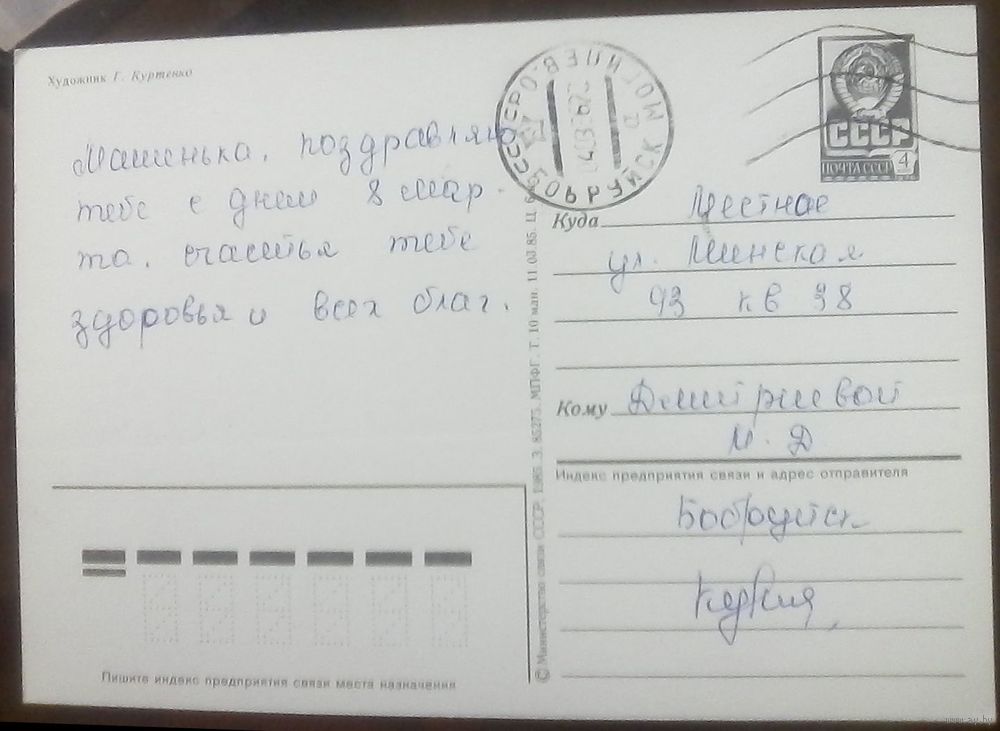 Художник Г. Куртенко
Машенька, поздравляю
тебе с днем 8 мар-
та, счастья тебе
здоровья и всех благ.
БОБРУЙСК МОГИЛЕВ
СССР
ПОЧТА СССР 4
Куда Местное
ул. Минская
93 кв 38
Кому Дмитриевой
М. Д
Индекс предприятия связи и адрес отправителя
Бобруйск
© Министерство связи СССР. 1985. З. 85275. МПФГ. Т. 10 млн. 11.03.85. Ц.
Пишите индекс предприятия связи места назначения
www.ay.by